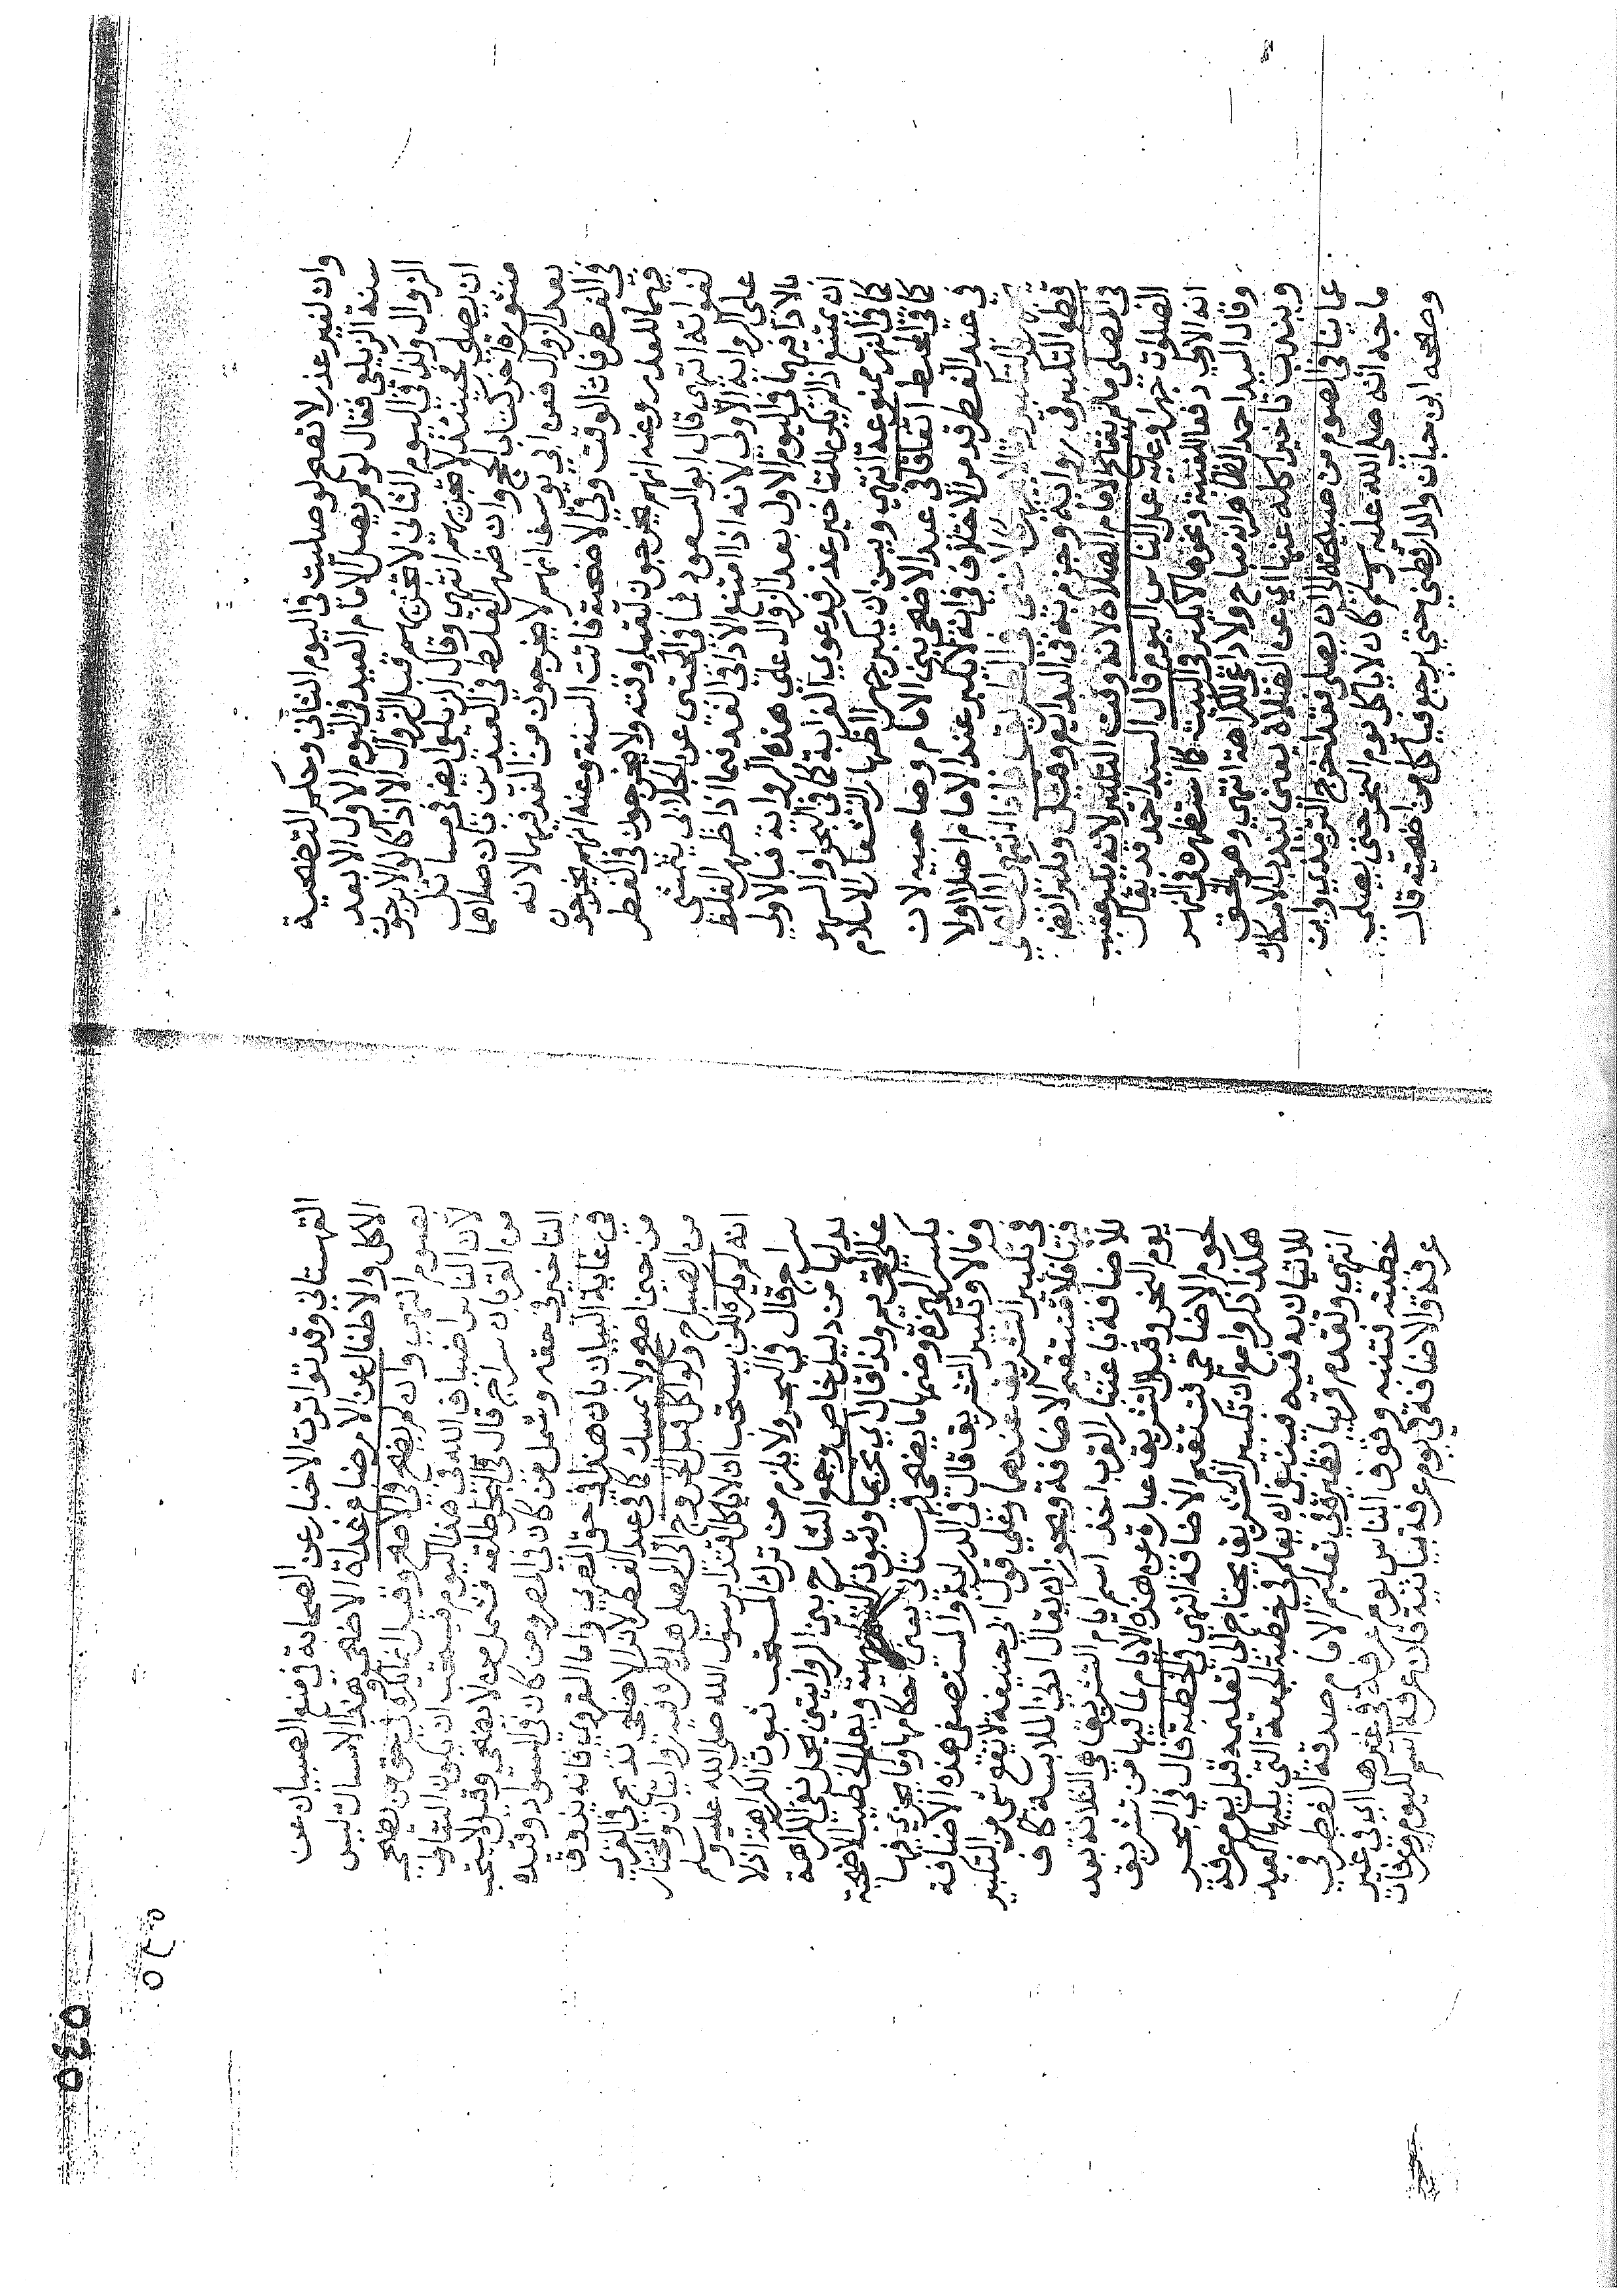 وان لغير عذر لا تصح لو صليت في اليوم الثاني وحكم التضحية
سنة الزيلعي فقال لو لم يصل الامام العيد في اليوم الاول الا بعد
الزوال وكذا في اليوم الثاني لا تجزيهم قبل الزوال الا اذا كانوا لا يرجون
ان يصلي بهم حينئذ لا تجزيهم انتهى وقال الزيلعي ايضا في مسائل
منثورة اخر كتاب الحج وان ظهر الغلط في العيدين بان صلاهما
بعد الزوال فعن ابي يوسف انهم لا يخرجون من الغد فيهما لانه
في الفطر فات الوقت وفي الاضحية فاتت السنة وعنه انهم يخرجون
فيهما للعذر وعنه انهم يخرجون في الاضحى لبقاء وقته ولا يخرجون في الفطر
لفواته انتهى قال ابو السعود فما في المجتبى عن الجلابي يتمشى
على الرواية الاولى لانه اذا امتنع الاداء في الغد فيما اذا ظهر الغلط
بالاداء فيهما في اليوم الاول بعد الزوال على هذه الرواية فبالاولى
ان يمتنع اذا لم يكن للتاخير عذر فدعوى الغرابة كما في البحر والنهر
كما في النهر ممنوعة انتهى ويسن ان يكبر جهرا اظهارا لشعار الاسلام
كما في المحيط اتفاقا في عيد الاضحى بين الامام وصاحبيه لان
في عيد الفطر قد مر الاختلاف في انه لا يكبر عند الامام اصلا او لا
قطع التكبير في رواية وجزم به في البدايع وقيل ويكبر ايضا
في المصلى ما لم يفتتح الامام الصلاة لانه وقت التكبير لانه يكبر عقيب
الصلوات جهرا وعليه عمل الناس اليوم قال السيد احمد قد يقال
انه الاولى دفعا للغيبة ونحوها لا يكبر في البيت كما استظهره في النهر
وقال السيد احمد الظاهر انه مباح ولا داعي للكراهة انتهى وهو الحق
ويندب تاخير اكله عنها اي عن الصلاة يعني يندب الامساك
عما ينافي الصوم من صبيحته الى ان يصلي فقد اخرج الترمذي وابن
ماجه انه صلى الله عليه وسلم كان لا ياكل يوم النحر حتى يصلي
وصححه ابن حبان والدارقطني حتى يرجع فياكل من اضحيته قال
القهستاني وقد تواترت الاخبار عن الصحابة في منع الصبيان عن
الاكل والاطفال عن الارضاع غداة الاضحى وهذا الامساك ليس
بصوم انتهى وان لم يضح في الاصح وقيل انما يكره في حق من يضحي
لان الناس اضياف الله في هذا اليوم فيستحب ان يكون التناول
من القربان سراج قال في البحر اطلقه فشمل من لا يضحي وقيل لا يستحب
التاخير في حقه وشمل من كان في المصر ومن كان في السواد وقيده
في غاية البيان بان هذا في حق المصري واما القروي فانه يذوق
من حين اصبح ولا يمسك كما في عيد الفطر لان الاضاحي تذبح في القرى
من الصباح ولو اكل قبل الخروج الى المصلى هل يكره فيه روايتان والمختار
انه لم يكره لكن يستحب ان لا ياكل اقتداء برسول الله صلى الله عليه وسلم
سراج قال في البحر ولا يلزم من ترك المستحب ثبوت الكراهة اذ لا
بد لها من دليل خاص وجمع الشارح بين الروايتين بحمل نفي الكراهة
على التحريم ولذا قال اي تحريما وثبوت التنزيهية ويعلم الخطيب الاضحية
بكسر الهمزة وضمها ما يضحي قهستاني يعني احكامها وما يجزي فيها
وما لا وتكبير التشريق قال في الدراية والمستصفى هذه الاضافة
في تكبير التشريق عندهما وعلى قول ابي حنيفة لا يقع شي من التكبير
فيها فلا تستقيم الاضافة ويجوز ان يقال ادنى الملابسة كاف
للاضافة باعتبار القرب اخذ اسم ايام التشريق هي الثلاثة بعد
يوم النحر وقيل التشريق عبارة عن هذه الايام لما فيها من تشريق
لحوم الاضاحي فتستقيم الاضافة انتهى في الخطبة قال في البحر
هكذا ذكروا مع ان تكبير التشريق يحتاج الى تعليمه قبل يوم عرفة
للاتيان به فيه فينبغي ان يعلم في خطبة الجمعة التي يليها العيد
انتهى وتقدم قريبا نظيره في تعليم الامام صدقة الفطر في
خطبته فتنبه ووقوف الناس يوم عرفة في غيرها اي في غير
عرفة والاضافة في يوم عرفة بيانية فان عرفة اسم لليوم وعرفات
٥٤٥